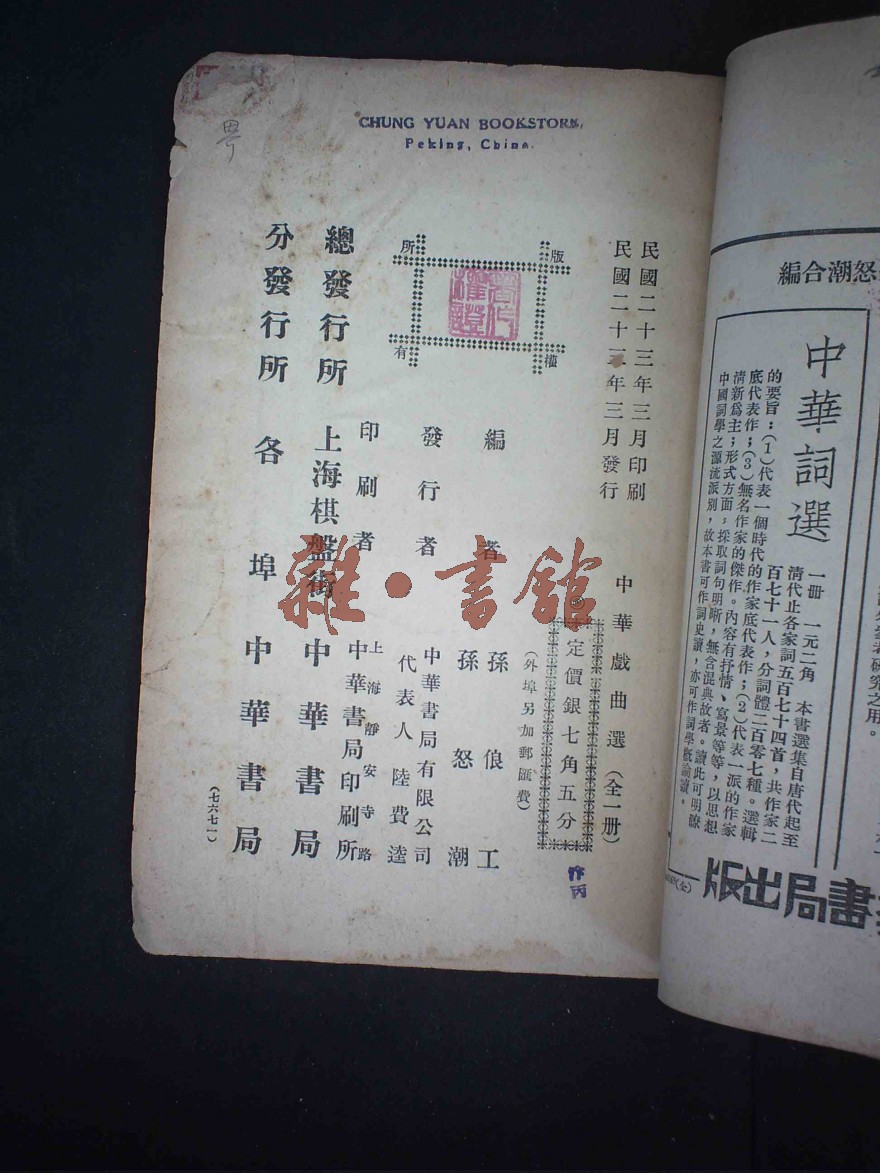 CHUNG YUAN BOOKSTORE,
Peking, China.
民國二十三年三月印刷
民國二十三年三月發行
中華戲曲選（全一册）
定價銀七角五分
（外埠另加郵匯費）
版權所有
著作權證
編者 孫俍工
孫怒潮
發行者 中華書局有限公司
代表人陸費逵
印刷者 上海靜安寺路
中華書局印刷所
總發行所 上海棋盤街 中華書局
分發行所 各埠 中華書局
（七六七一）
雜·書館
怒潮合編
中華詞選
一冊 一元二角 本書選集自唐代起至
清代止各家詞五百七十四首，共作家二
百七十一人，分詞體二百零七種。選輯
的要旨：(1)代表一個時代的作家底代表作；(2)代表一派的作家
底代表作；(3)無名作家的傑作。內容有抒情、寫景等等，以思想
清新爲主；形式方面，採取詞句明晰，無含混典故者。讀此可明瞭
中國詞學之源流派別，故本書可作詞史讀，亦可作詞學概論讀。
研究之用。
書局出版